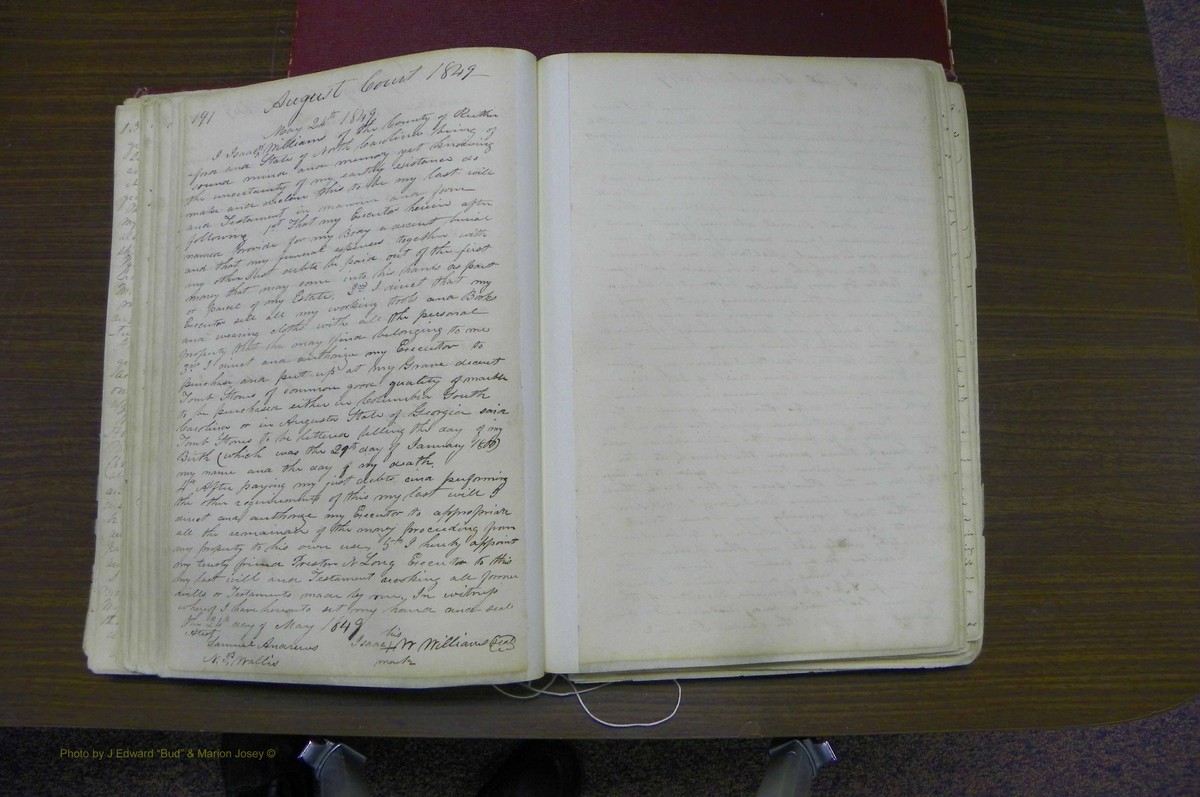 August Court 1849
191
May 24th 1849
I Isaac W Williams of the County of Ruther
-ford and State of North Carolina being of
sound mind and memory yet knowing
the uncertainty of my earthly existence do
make and declare this to be my last will
and Testament in manner and form
following 1st That my Executor herein after
named Provide for my Body a decent burial
and that my funeral expenses together with
my other just debts be paid out of the first
money that may come into his hands as part
or parcel of my Estate. 2nd I direct that my
Executor sell all my working tools and Books
and wearing cloths with all the personal
property that he may find belonging to me
3rd I direct and authorize my Executor to
purchase and put up at my Grave decent
Tomb Stones of common good quality of marble
to be purchased either in Columbia South
Carolina or in Augusta State of Georgia said
Tomb Stones to be lettered telling the day of my
Birth (which was the 29th day of January
my name and the day of my death,
4th After paying my just debts and performing
the other requirements of this my last will I
direct and authorize my Executor to appropriate
all the remainder of the money proceeding from
my property to his own use, 5th I hereby appoint
my trusty friend Preston N Long Executor to this
my last will and Testament revoking all former
wills or Testaments made by me, In witness
whereof I have hereunto set my hand and seal
the 24th day of May 1849
Attest his
Samuel Andrews Isaac + W Williams (Seal)
Wallis mark
Photo by J Edward "Bud" & Marion Josey ©